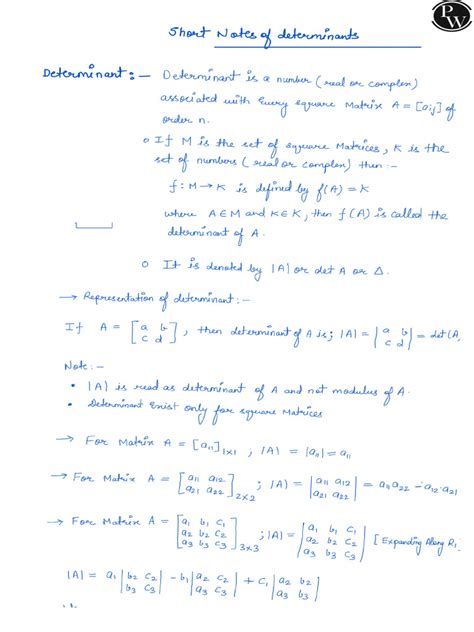 PW
Short Notes of determinants
Determinant :— Determinant is a number (real or complex)
associated with Every square Matrix A = [aij] of
order n.
o If M is the set of square Matrices, K is the
set of numbers (real or complex) then :-
f : M → K is defined by f(A) = K
where A ∈ M and K ∈ K, then f(A) is called the
determinant of A.
o It is denoted by |A| or det A or Δ.
→ Representation of determinant :-
If A = [a b; c d], then determinant of A is; |A| = |a b; c d| = det(A,
Note :-
• |A| is read as determinant of A and not modulus of A.
• Determinant Exist only for square Matrices
→ For Matrix A = [a11]1×1 , |A| = |a11| = a11
→ For Matrix A = [a11 a12; a21 a22]2×2 ; |A| = |a11 a12; a21 a22| = a11a22 - a12.a21
→ For Matrix A = [a1 b1 c1; a2 b2 c2; a3 b3 c3]3×3 ; |A| = |a1 b1 c1; a2 b2 c2; a3 b3 c3| [Expanding Along R1
|A| = a1 |b2 c2; b3 c3| - b1 |a2 c2; a3 c3| + c1 |a2 b2; a3 b3|